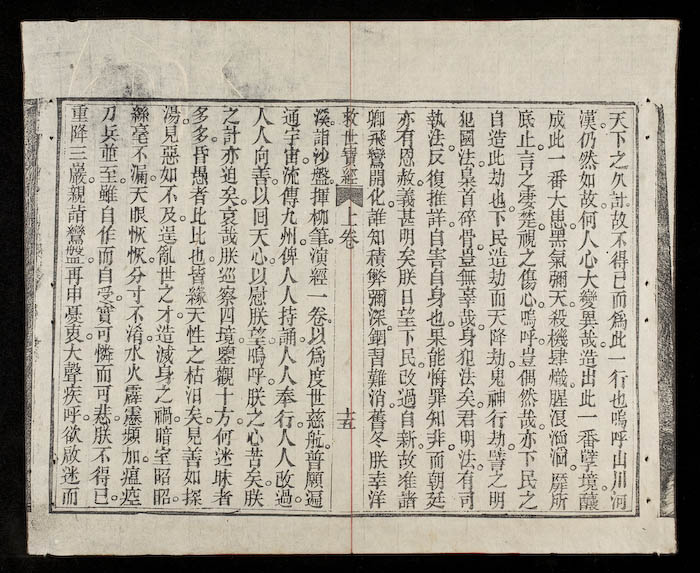 天下之久計故不得已而為此一行也嗚呼山川河
漢仍然如故何人心大變異哉造出此一番孽境釀
成此一番大患黑氣彌天殺機肆熾腥浪滔滔靡所
底止言之凄楚視之傷心嗚呼豈偶然哉亦下民之
自造此劫也下民造劫而天降劫鬼神行劫譬之明
犯國法梟首碎骨豈無辜哉身犯法矣君明法有司
執法反復推詳自害自身也果能悔罪知非而朝廷
亦有恩赦義甚明矣朕日望下民改過自新故准諸
卿飛鸞開化誰知積弊彌深錮習難消舊冬朕幸洋
救世寶經 上卷 十五
溪詣沙盤揮柳筆演經一卷以為度世慈航普願遍
通宇宙流傳九州俾人人持誦人人奉行人人改過
人人向善以回天心以慰朕望嗚呼朕之心苦矣朕
之計亦迫矣哀哉朕巡察四境鑒觀十方何迷昧者
多多昏愚者比比也皆緣天性之枯汨矣見善如探
湯見惡如不及逞亂世之才造滅身之禍暗室昭昭
絲毫不漏天眼恢恢分寸不淆水火霹靂頻加瘟疫
刀兵並至雖自作而自受實可憐而可悲朕不得已
重降三巖親詣鸞盤再申憂衷大聲疾呼欲啟迷而